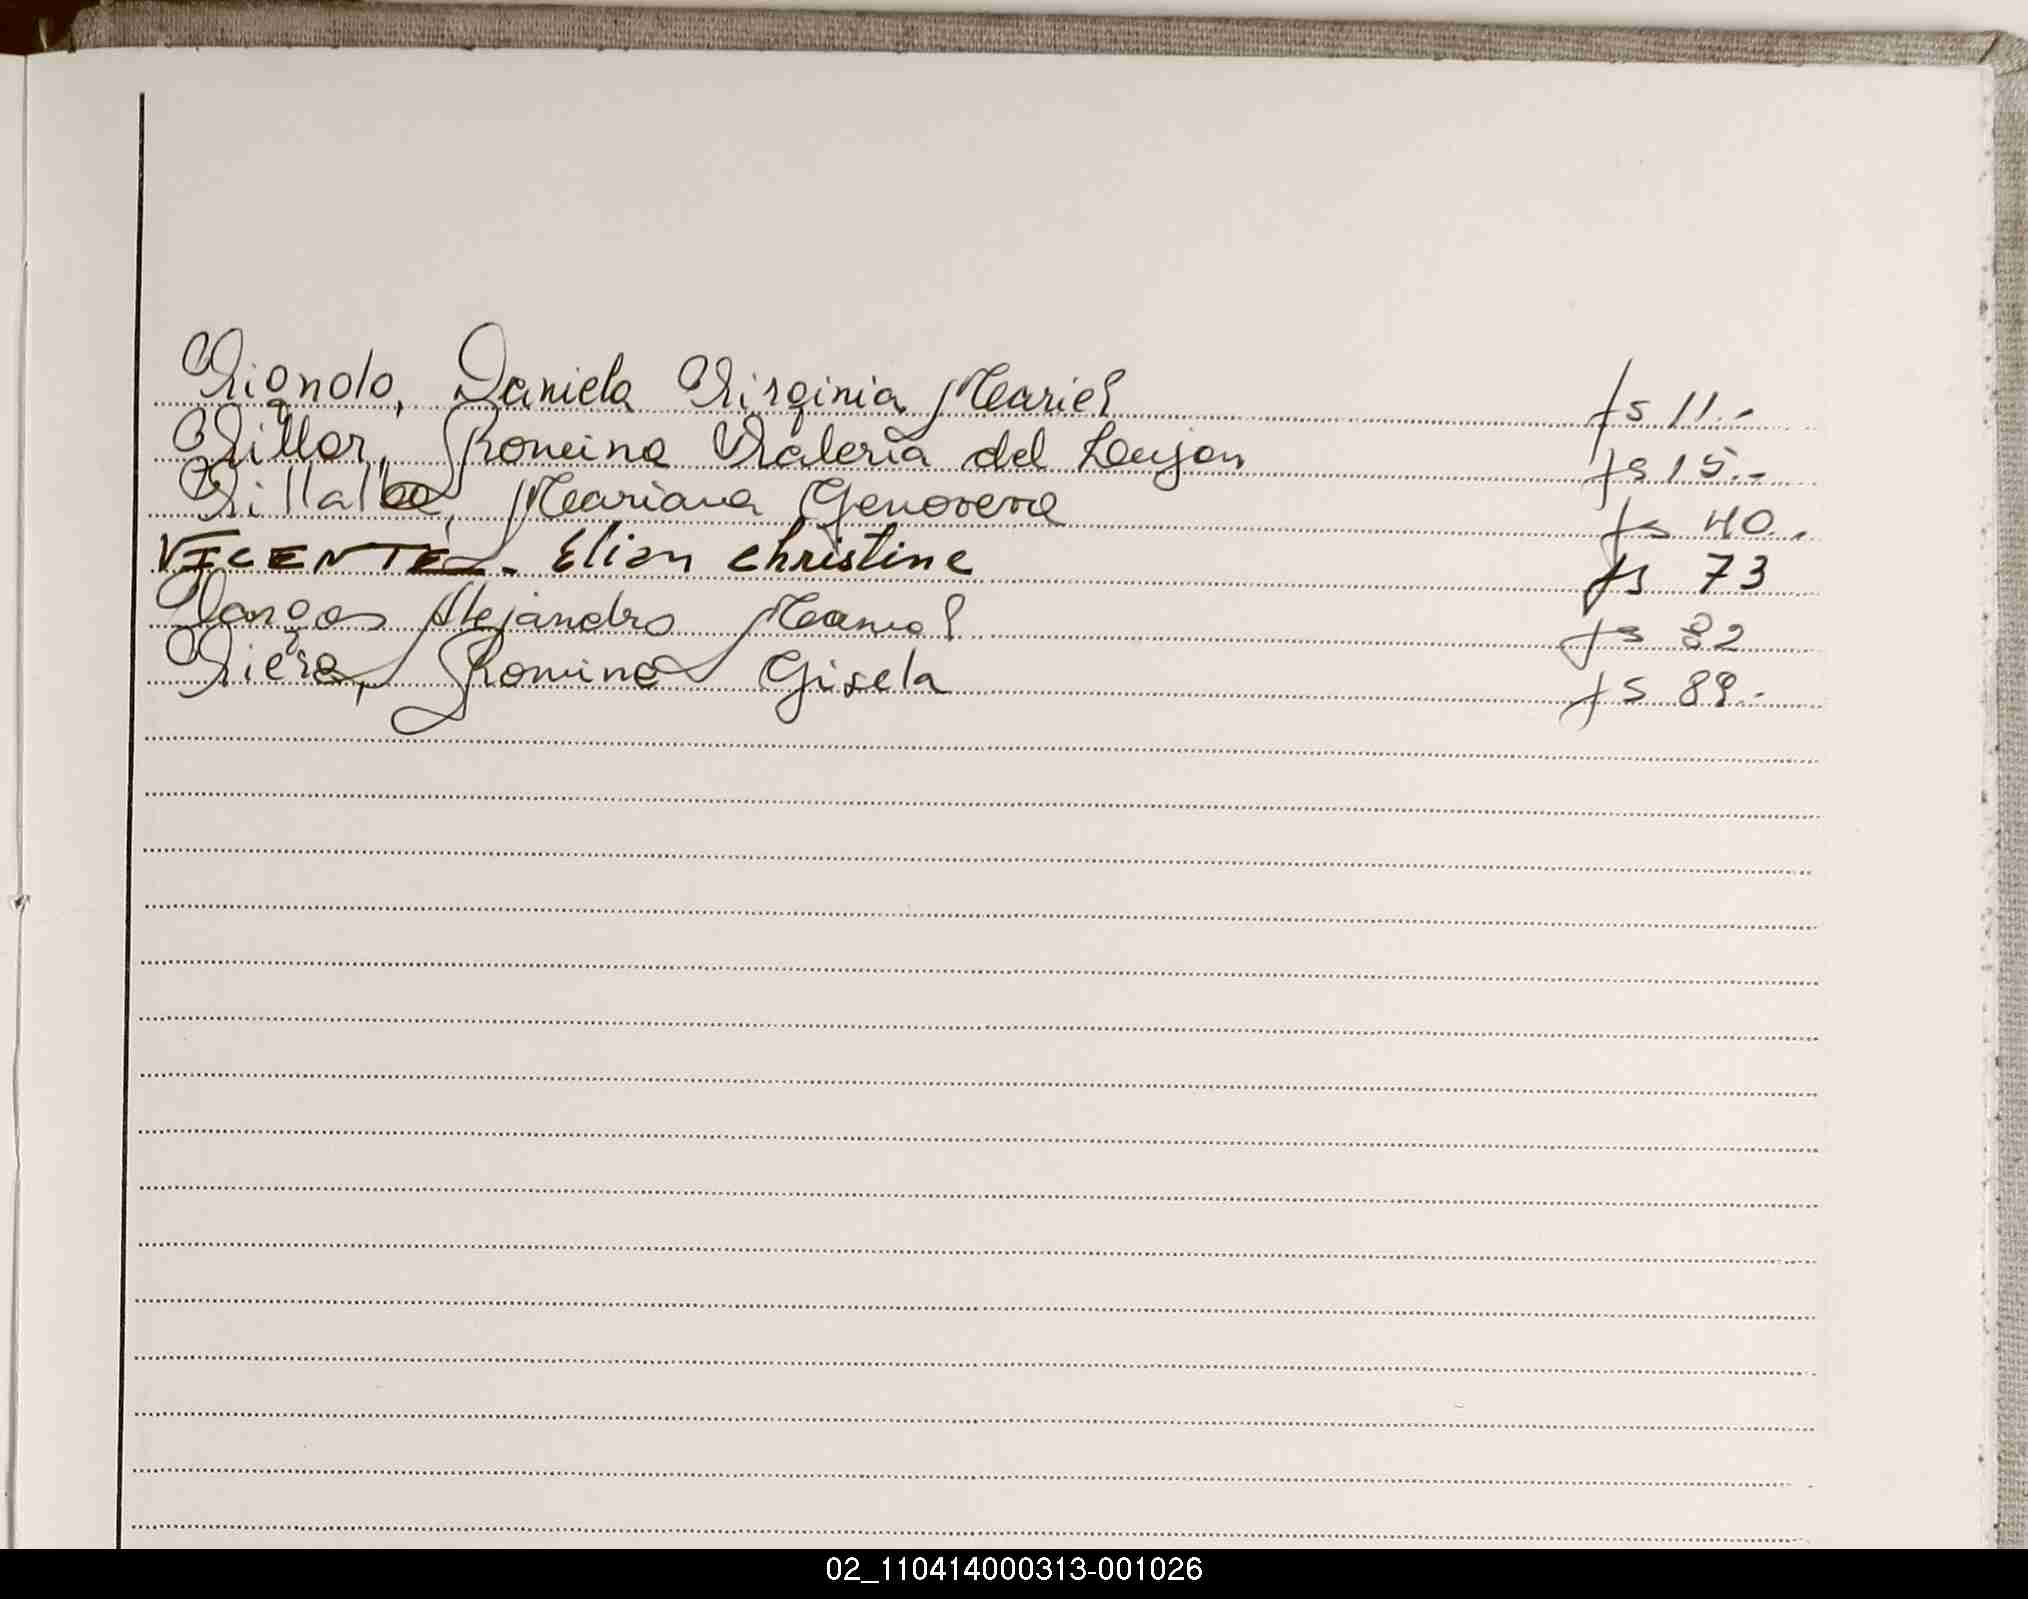 Vignolo, Daniela Virginia Mariel fs 11.-
Villar, Romina Valeria del Lujan fs 15.-
Villalba, Mariana Genoveva fs 40.-
VICENTE - Elian christine fs 73
Vargas Alejandro Manuel fs 82
Viera, Romina Gisela fs 89.-
02_110414000313-001026